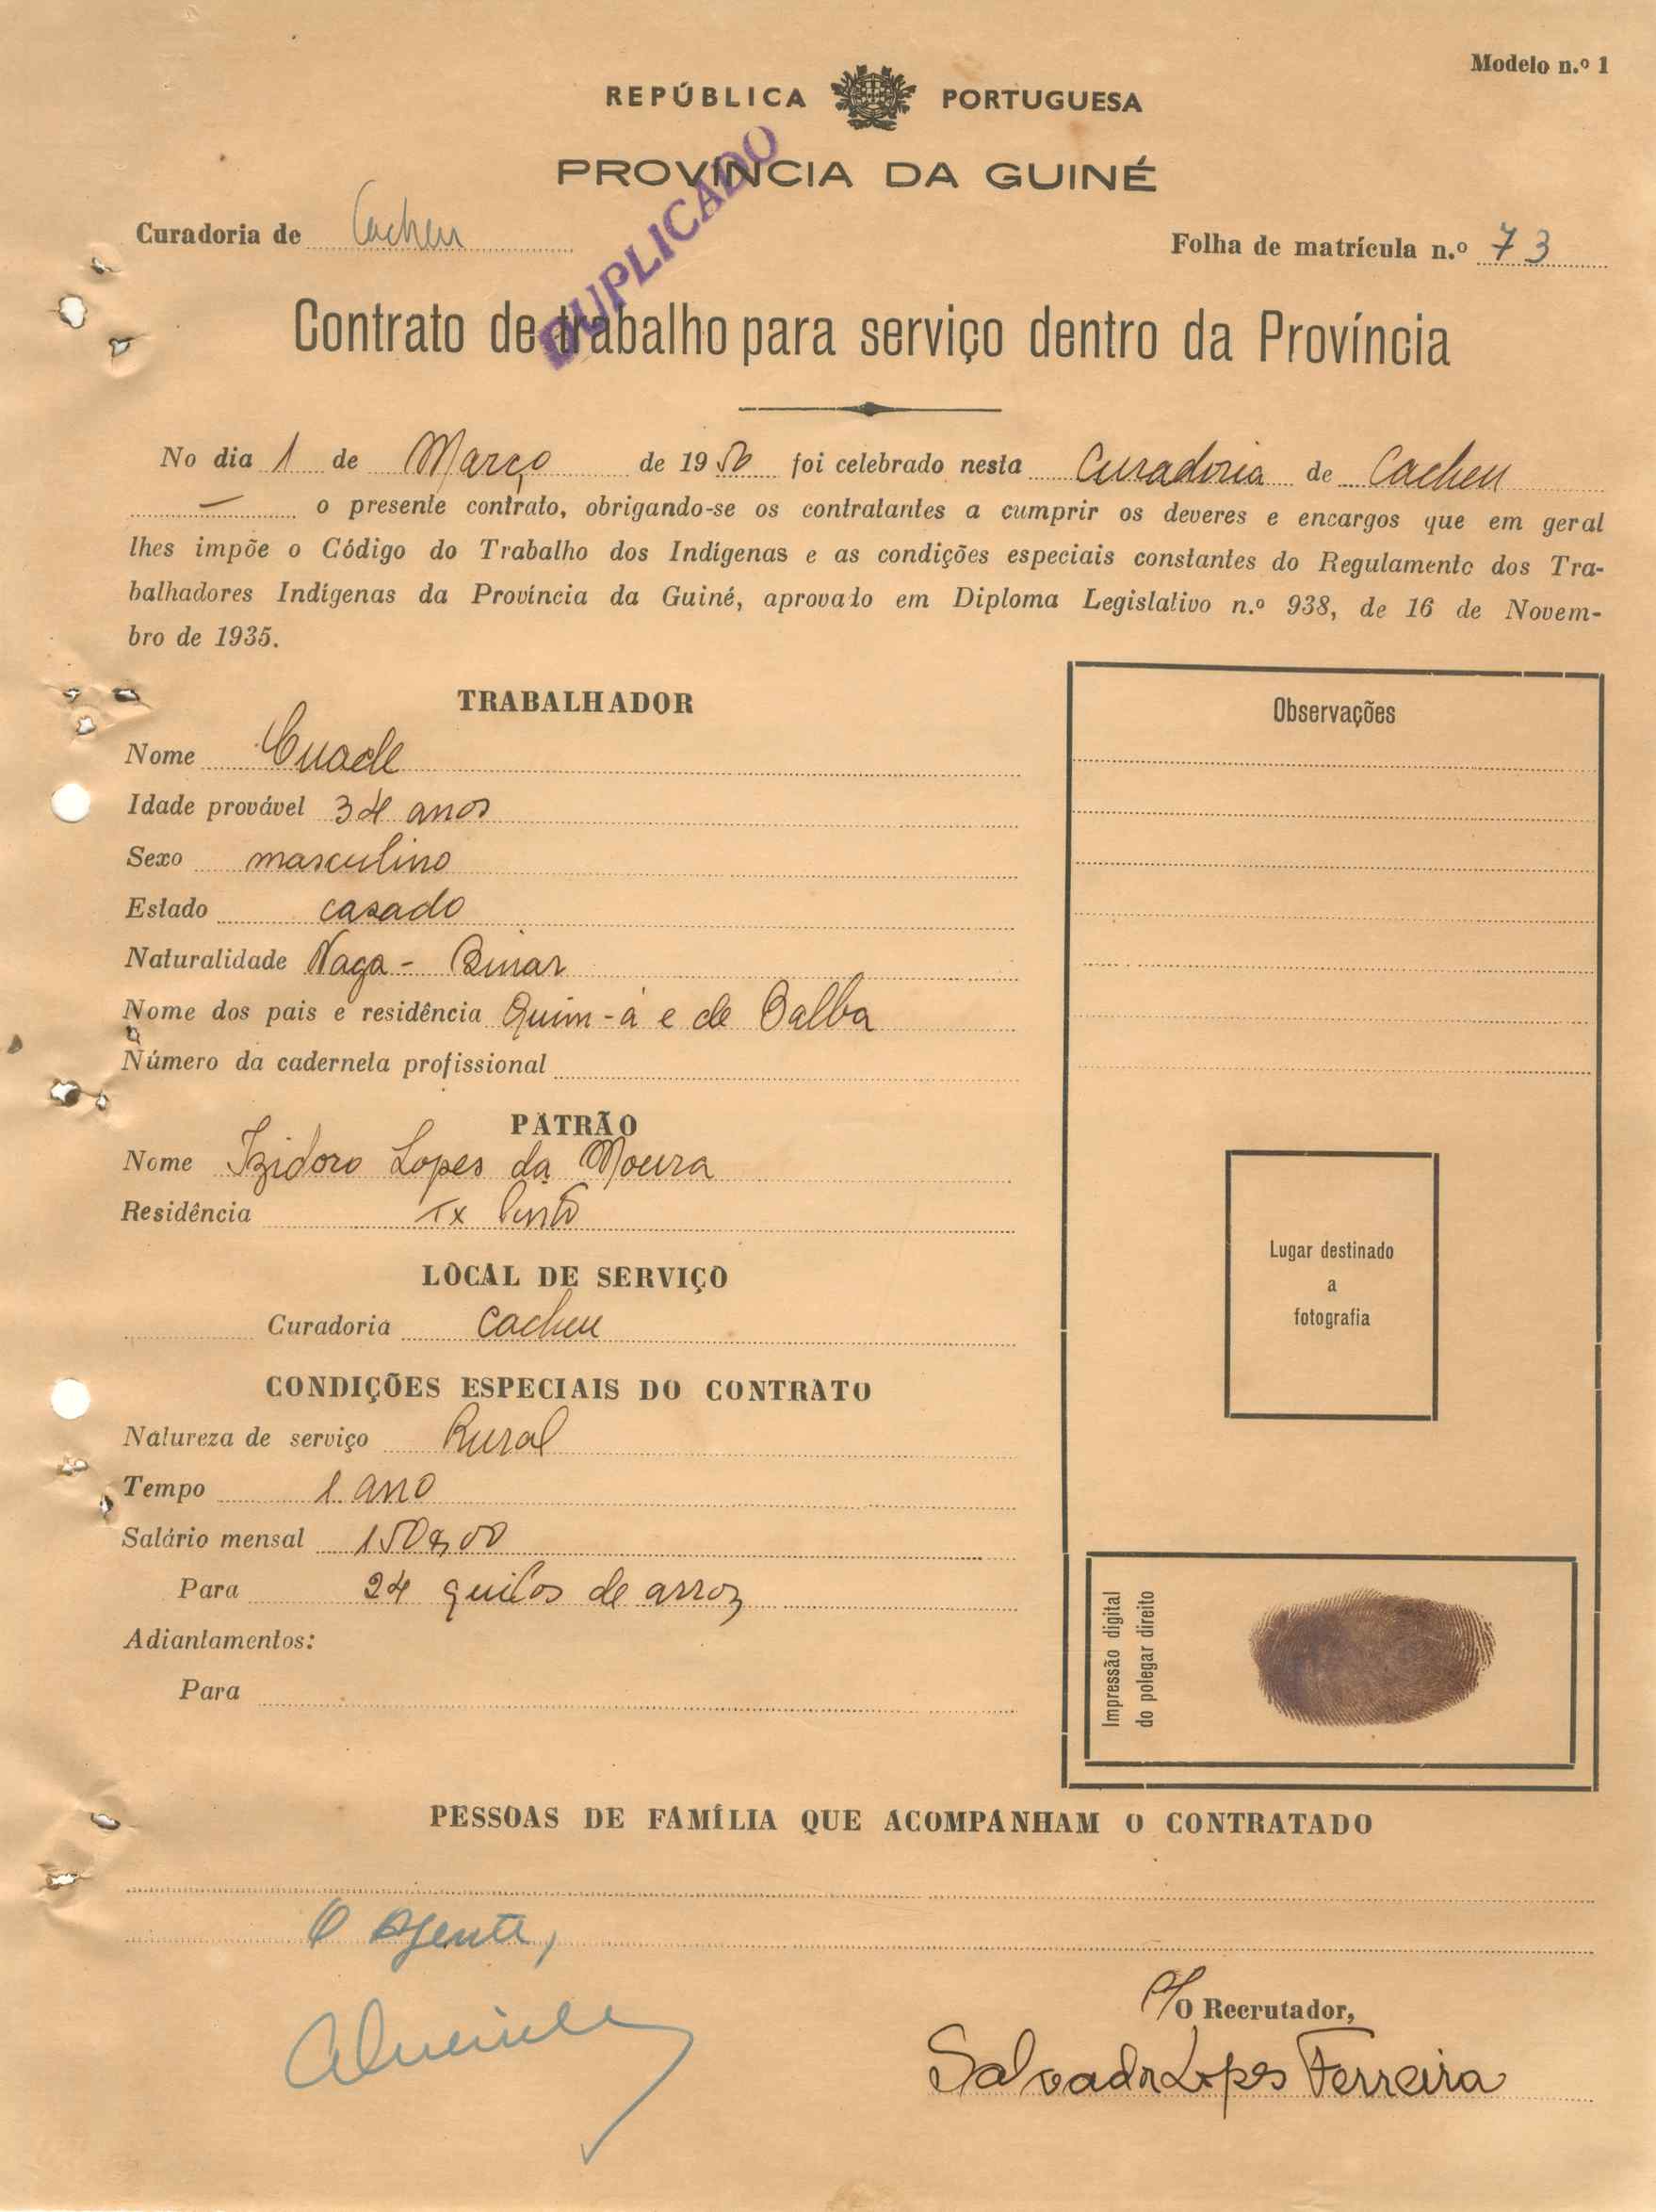 Modelo n.º 1
REPÚBLICA PORTUGUESA
PROVÍNCIA DA GUINÉ
DUPLICADO
Curadoria de Cacheu
Folha de matrícula n.º 73
Contrato de trabalho para serviço dentro da Província
No dia 1 de Março de 1950 foi celebrado nesta Curadoria de Cacheu
— o presente contrato, obrigando-se os contratantes a cumprir os deveres e encargos que em geral
lhes impõe o Código do Trabalho dos Indígenas e as condições especiais constantes do Regulamento dos Tra-
balhadores Indígenas da Província da Guiné, aprovado em Diploma Legislativo n.º 938, de 16 de Novem-
bro de 1935.
TRABALHADOR
Nome
Idade provável 34 anos
Sexo masculino
Estado casado
Naturalidade Naga - Binar
Nome dos pais e residência Quim-á e de Balba
Número da caderneta profissional
PATRÃO
Nome Izidoro Lopes da Moura
Residência Tx Pinto
LOCAL DE SERVIÇO
Curadoria Cacheu
CONDIÇÕES ESPECIAIS DO CONTRATO
Natureza de serviço Rural
Tempo 1 ano
Salário mensal 150$00
Para 24 quilos de arroz
Adiantamentos:
Para
Observações
Lugar destinado
a
fotografia
Impressão digital
do polegar direito
PESSOAS DE FAMÍLIA QUE ACOMPANHAM O CONTRATADO
O Agente,
P/O Recrutador,
Salvador Lopes Ferreira